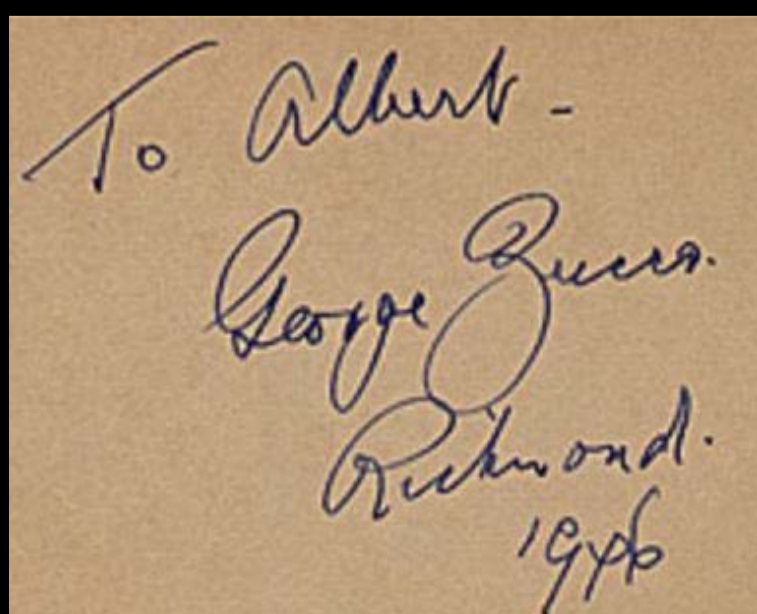 To Albert -
George Zucco.
Richmond.
1946